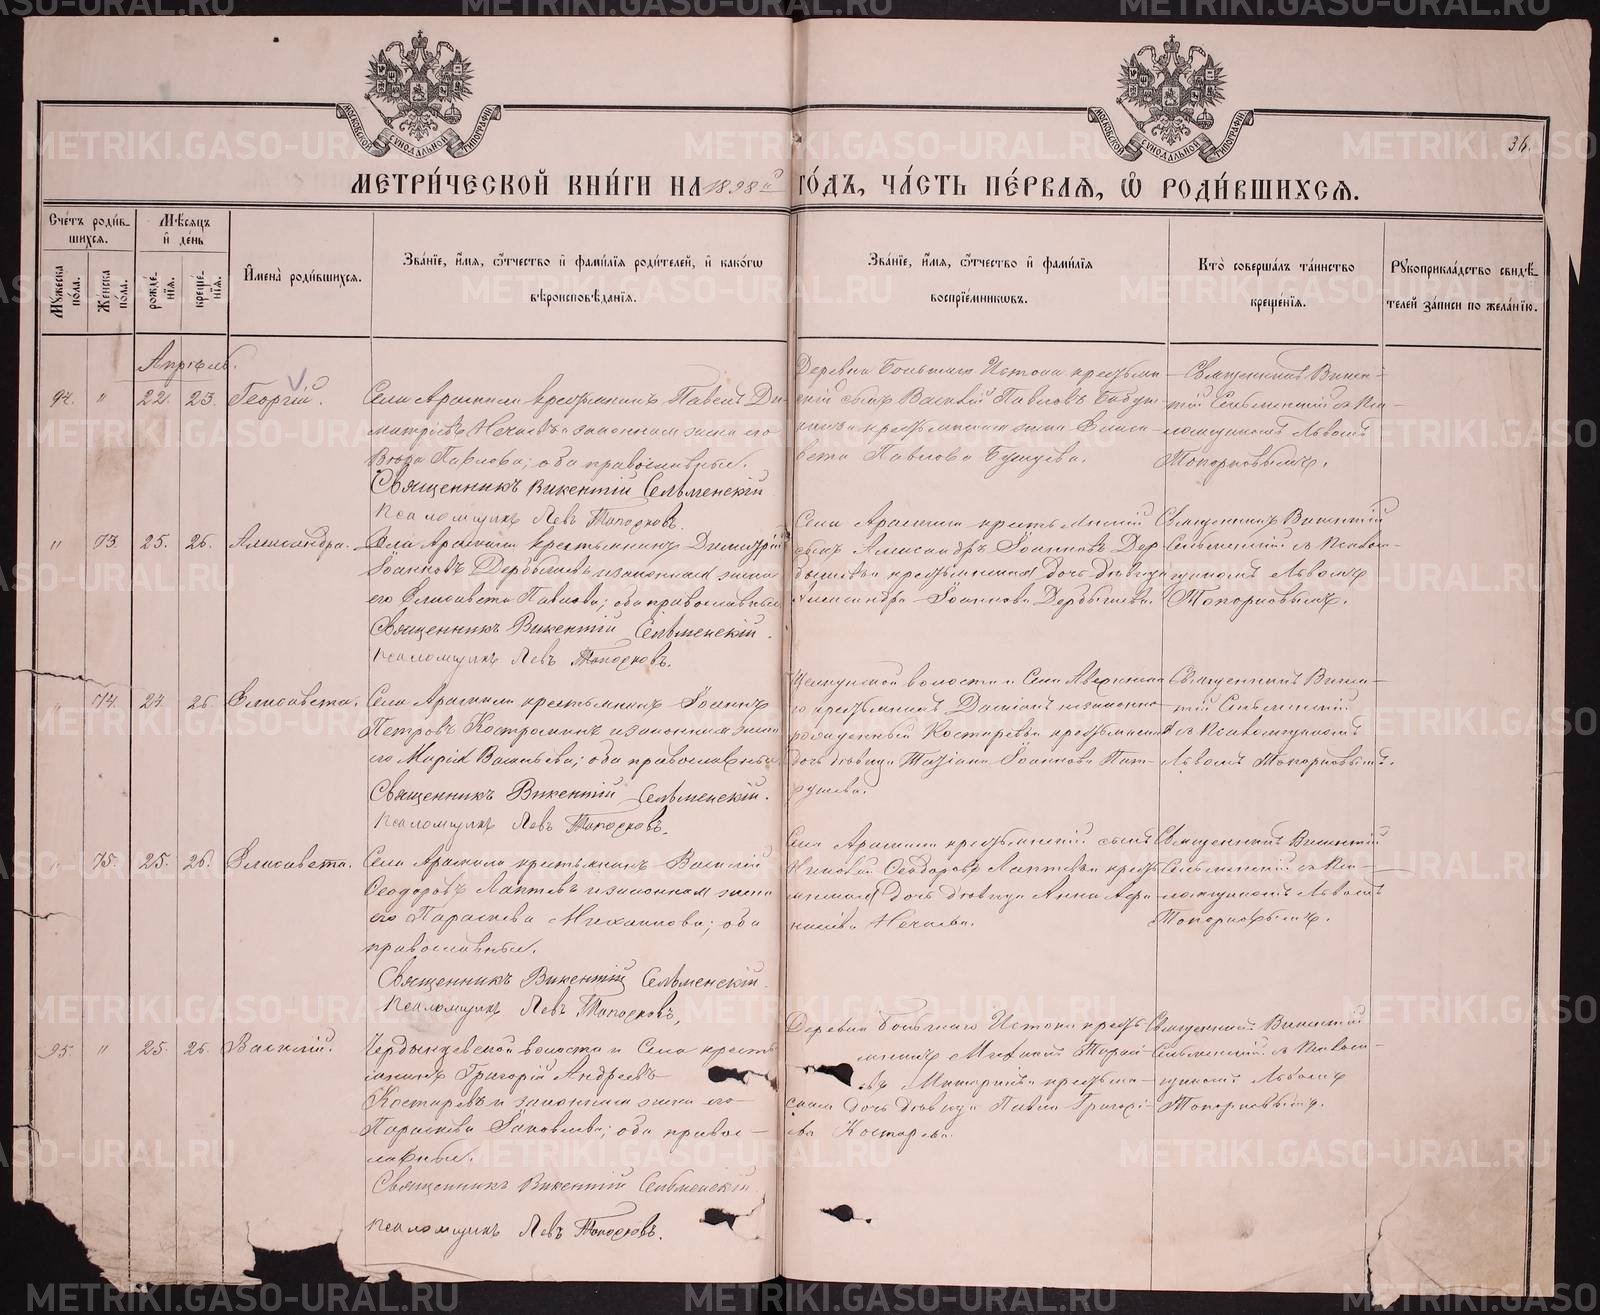 МОСКОВСКОЙ СѴНОДАЛЬНОЙ ТИПОГРАФІИ
МОСКОВСКОЙ СѴНОДАЛЬНОЙ ТИПОГРАФІИ
МЕТРИ́ЧЕСКОЙ КНИ́ГИ НА 1898й ГО́ДЪ, ЧА́СТЬ ПЕ́РВАѦ, Ѿ РОДИ́ВШИХСѦ.
Сче́тъ роди́в-
шихсѧ.
Мѣ́сѧцъ
и де́нь
Мꙋ́жеска
пола.
Же́нска
пола.
рожде́-
нїѧ.
креще́-
нїѧ.
Имена̀ роди́вшихсѧ.
Зва́нїе, и́мѧ, ѻ́тчество и фами́лїѧ роди́телей, и како́гѡ
вѣроисповѣ́данїѧ.
Зва́нїе, и́мѧ, ѻ́тчество и фами́лїѧ
воспрїе́мникѡвъ.
Кто̀ соверша́лъ та́инство
креще́нїѧ.
Рꙋкоприкла́дство свидѣ́-
телей за́писи по жела́нїю.
Апрѣль.
94. " 22. 23. Георгій.
Села Арамили крестьянинъ Павелъ Ди-
митріевъ Нечаевъ и законная жена его
Павлова; оба православные.
Священникъ Викентій Сельменскій
Псаломщикъ Левъ Топорковъ.
Деревни Большаго Истока крестьян-
скій сынъ Василій Павловъ Бабуш-
кинъ и крестьянская жена Елиса-
вета Павлова
Священникъ Викен-
тій Сельменскій съ Пса-
ломщикомъ Львомъ
Топорковымъ.
" 73. 25. 26. Александра.
Села Арамили крестьянинъ Димитрій
Іоанновъ Дербышевъ и законная жена
его Елисавета Павлова; оба православные
Священникъ Викентій Сельменскій.
Псаломщикъ Левъ Топорковъ.
Села Арамили крестьянскій
сынъ Александръ Іоанновъ Дер-
бышевъ и крестьянская дочь дѣвица
Александра Іоаннова Дербышева.
Священникъ Викентій
Сельменскій съ Псалом-
щикомъ Львомъ
Топорковымъ.
" 74. 24. 26. Елисавета.
Села Арамили крестьянинъ Іоаннъ
Петровъ Костроминъ и законная жена
его Марія Васильева; оба православные
Священникъ Викентій Сельменскій.
Псаломщикъ Левъ Топорковъ.
волости и Села Аверинска-
го крестьянинъ незаконно-
рожденный Костаревъ и крестьянская
дочь дѣвица Татіана Іоаннова Пат-
рушева.
Священникъ Викен-
тій Сельменскій
съ Псаломщикомъ
Львомъ Топорковымъ.
75. 25. 26. Елисавета.
Села Арамили крестьянинъ Василій
Ѳеодоровъ Лаптевъ и законная жена
его Параскева Михаилова; оба
православные.
Священникъ Викентій Сельменскій.
Псаломщикъ Левъ Топорковъ.
Села Арамили крестьянскій сынъ
Николай Ѳеодоровъ Лаптевъ и кресть-
янская дочь дѣвица Анна Аѳа-
насіева Нечаева.
Священникъ Викентій
Сельменскій съ Пса-
ломщикомъ Львомъ
Топорковымъ.
95. " 25. 26. Василій.
волости и Села кресть-
янинъ Григорій Андреевъ
Костаревъ и законная жена его
Параскева Іаковлева; оба правос-
лавные.
Священникъ Викентій Сельменскій
Псаломщикъ Левъ Топорковъ.
Деревни Большаго Истока кресть-
янинъ
и крестьян-
ская дочь дѣвица Павла Григорі-
ева Костарева.
Священникъ Викентій
Сельменскій съ Псалом-
щикомъ Львомъ
Топорковымъ.
METRIKI.GASO-URAL.RU